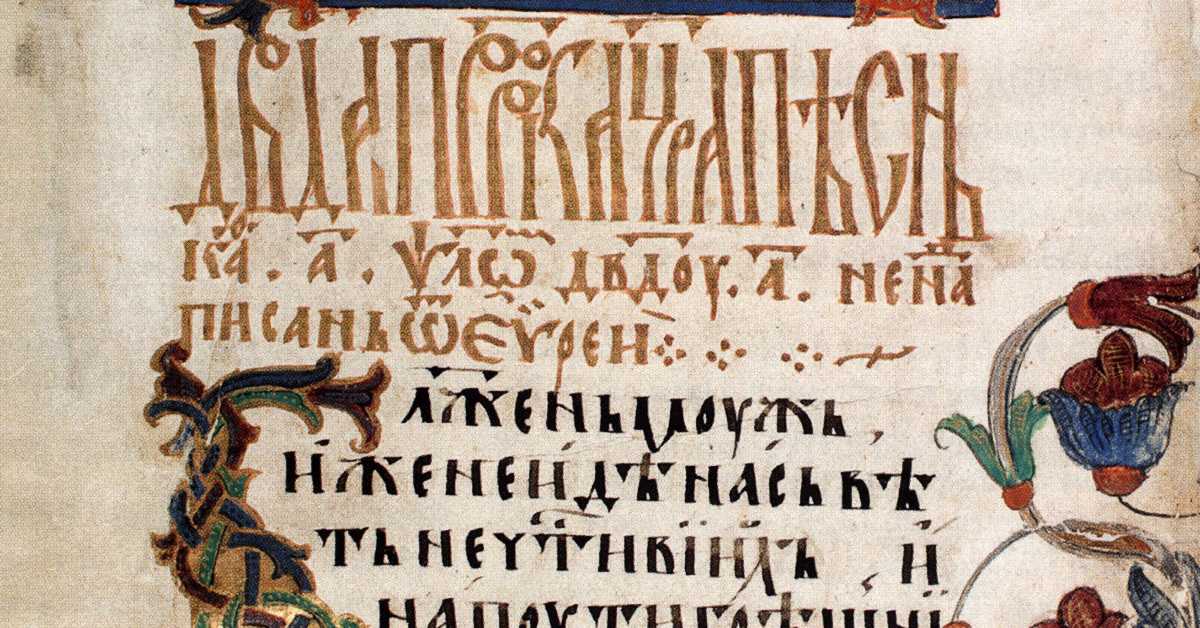 Дв҃да прⷪ҇рка ц҃ра пѣснь
каⷴ҇. а҃. ѱл҃ѡⷨ дв҃доу. а҃. не на
писань ѿ еѵреи
лж҃ень моужь,
иже не иде на сьвѣ
ть неч҃тивїихь и
на поути грѣшныи